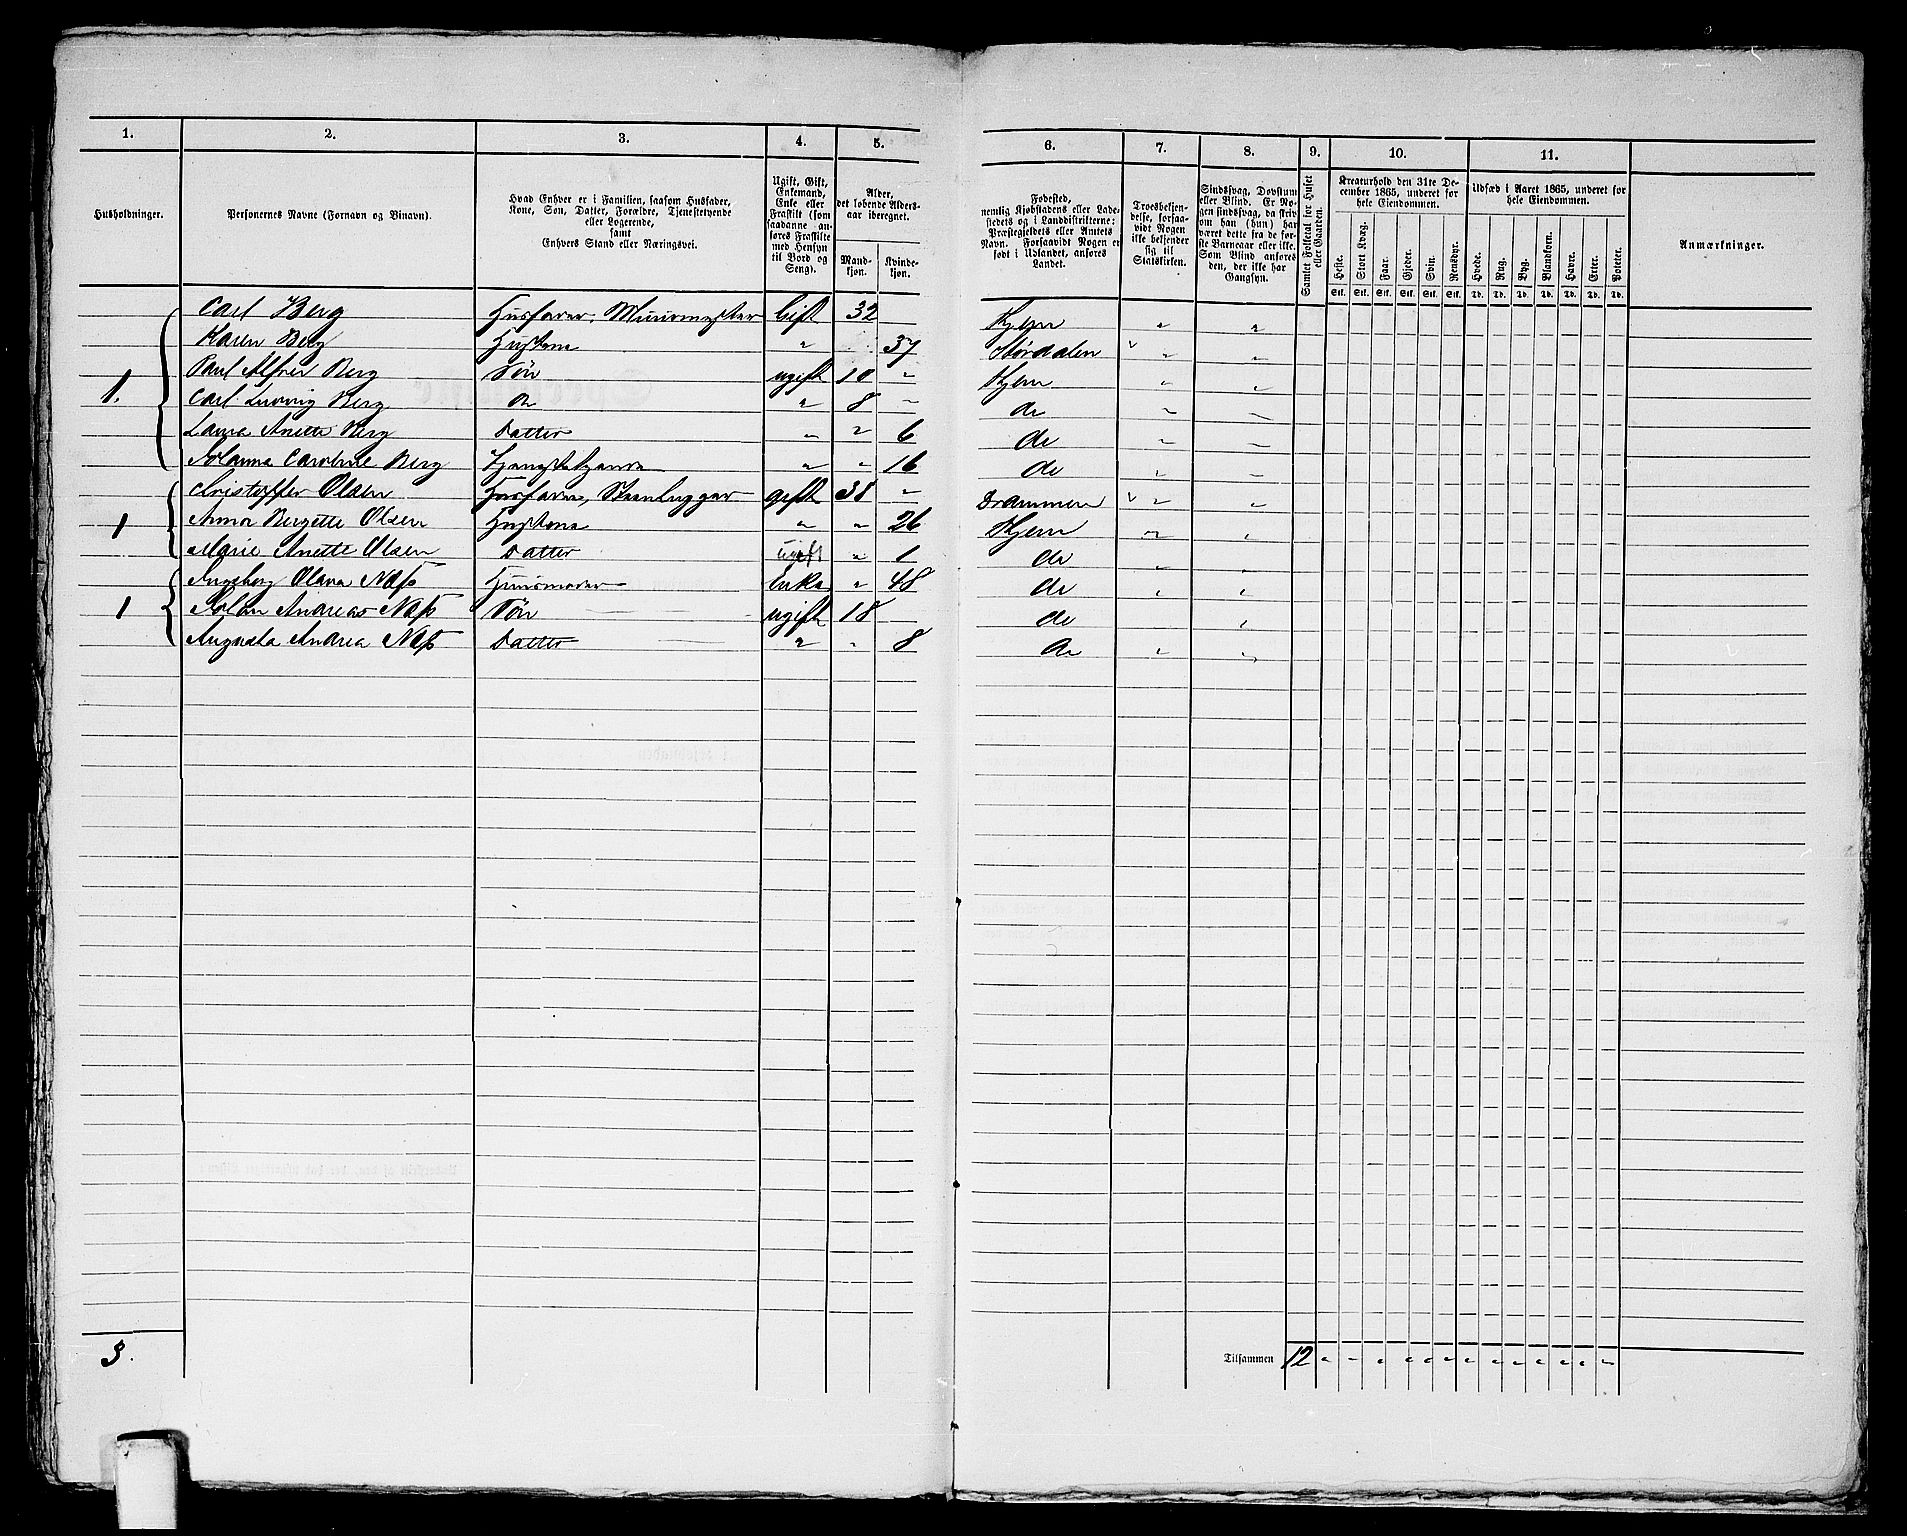 1.
2.
3.
4.
5.
6.
7.
8.
9.
10.
11.
Husholdninger.
Personernes Navne (Fornavn og Binavn).
Hvad Enhver er i Familien, saasom Husfader,
Kone, Søn, Datter, Forældre, Tjenestetyende
eller Logerende,
samt
Enhvers Stand eller Næringsvei.
Ugift, Gift,
Enkemand,
Enke eller
Fraskilt (som
saadanne an-
føres Fraskilte
med Hensyn
til Bord og
Seng).
Alder,
det løbende Alders-
aar iberegnet.
Mand-
kjøn.
Kvinde-
kjøn.
Fødested,
nemlig Kjøbstadens eller Lade-
stedets og i Landdistrikterne:
Præstegjeldets eller Amtets
Navn. Forsaavidt Nogen er
født i Udlandet, anføres
Landet.
Troesbekjen-
delse, forsaa-
vidt Nogen
ikke bekjender
sig til
Statskirken.
Sindssvag, Døvstum
eller Blind. Er No-
gen sindssvag, da skriv
om han (hun) har
været dette fra de før-
ste Barneaar eller ikke.
Som Blind anføres
den, der ikke har
Gangsyn.
Samlet Folketal for Huset
eller Gaarden.
Kreaturhold den 31te De-
cember 1865, underet for
hele Eiendommen.
Heste. Stort Kvæg. Faar. Gjeder. Svin. Rensdyr.
Stk. Stk. Stk. Stk. Stk. Stk.
Udsæd i Aaret 1865, underet for
hele Eiendommen.
Hvede. Rug. Byg. Blandkorn. Havre. Erter. Poteter.
Td. Td. Td. Td. Td. Td. Td.
Anmærkninger.
1. Carl Berg Husfader, Muurmester Gift 32 Hjem " "
Karen Berg Hustone " 37 Størdalen v " "
Paul Alfred Berg Søn ugift 10 " Hjem " "
Carl Ludvig Berg do " 8 " do " "
Laura Anette Berg Datter " " 6 do " "
Johanna Caroline Berg " " 16 do " "
1 Cristoffer Olsen Husfader, gift 38 " Drammen v " "
Anna Bergette Olsen Hustone " " 26 Hjem " "
Marie Anette Olsen Datter ugift " 1 do " "
1 Ingeborg Olava Næss Huusmoder Enke " 48 do " "
Johan Andreas Næss Søn ugift 18 do "
Augusta Andrea Næss Datter " " 8 do " "
3.
Tilsammen 12 " " " " " " " " " " " " "